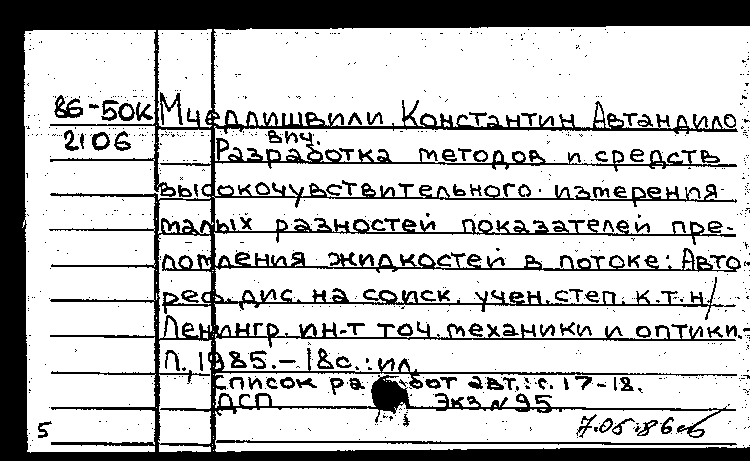 86-50к Мчедлишвили, Константин Автандило-
2106 вич.
Разработка методов и средств
высокочувствительного измерения
малых разностей показателей пре-
ломления жидкостей в потоке: Авто-
реф. дис. на соиск. учен. степ. к.т.н/
Ленингр. ин-т точ. механики и оптики.-
Л., 1985.-18с.:ил.
Список работ авт.: с. 17-18.
ДСП. Экз.N 95.
5 7.05.86